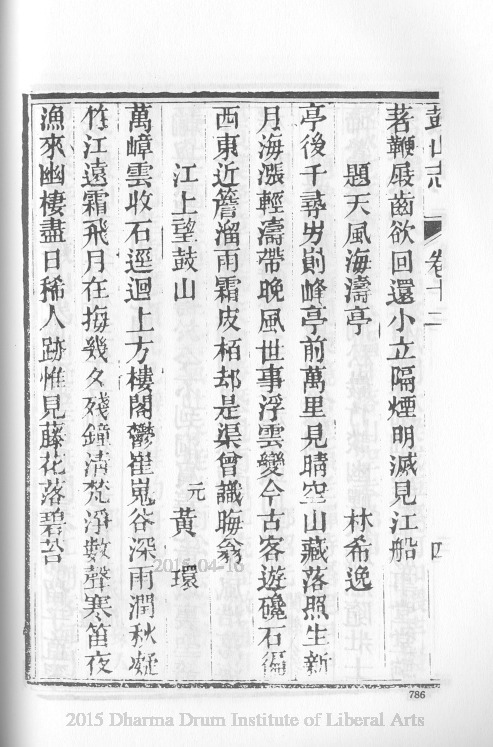 鼓山志 卷十 四
著鞭屐齒欲回還小立隔煙明滅見江船
題天風海濤亭 林希逸
亭後千尋屴崱峰亭前萬里見晴空山藏落照生新
月海漲輕濤帶晚風世事浮雲變今古客遊石徧
西東近簷溜雨霜皮栢却是渠曾識晦翁
江上望鼓山 元 黃環
萬嶂雲收石逕迴上方樓閣鬱崔嵬谷深雨潤秋凝
竹江遠霜飛月在梅幾殘鐘清梵淨數聲寒笛夜
漁來幽棲盡日稀人跡惟見藤花落碧苔
786
2015-04-16
2015 Dharma Drum Institute of Liberal Arts